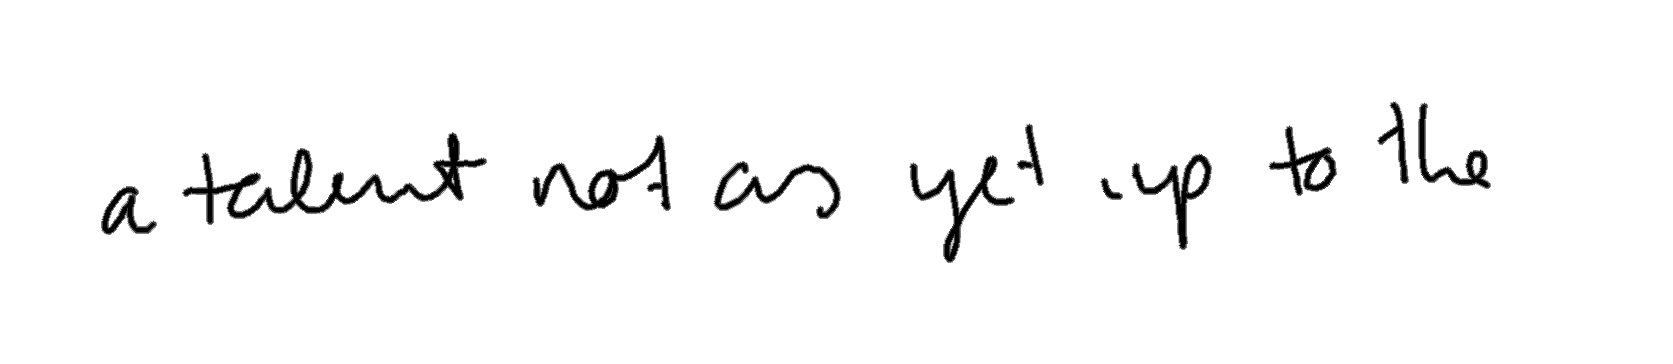 a talent not as yet up to the